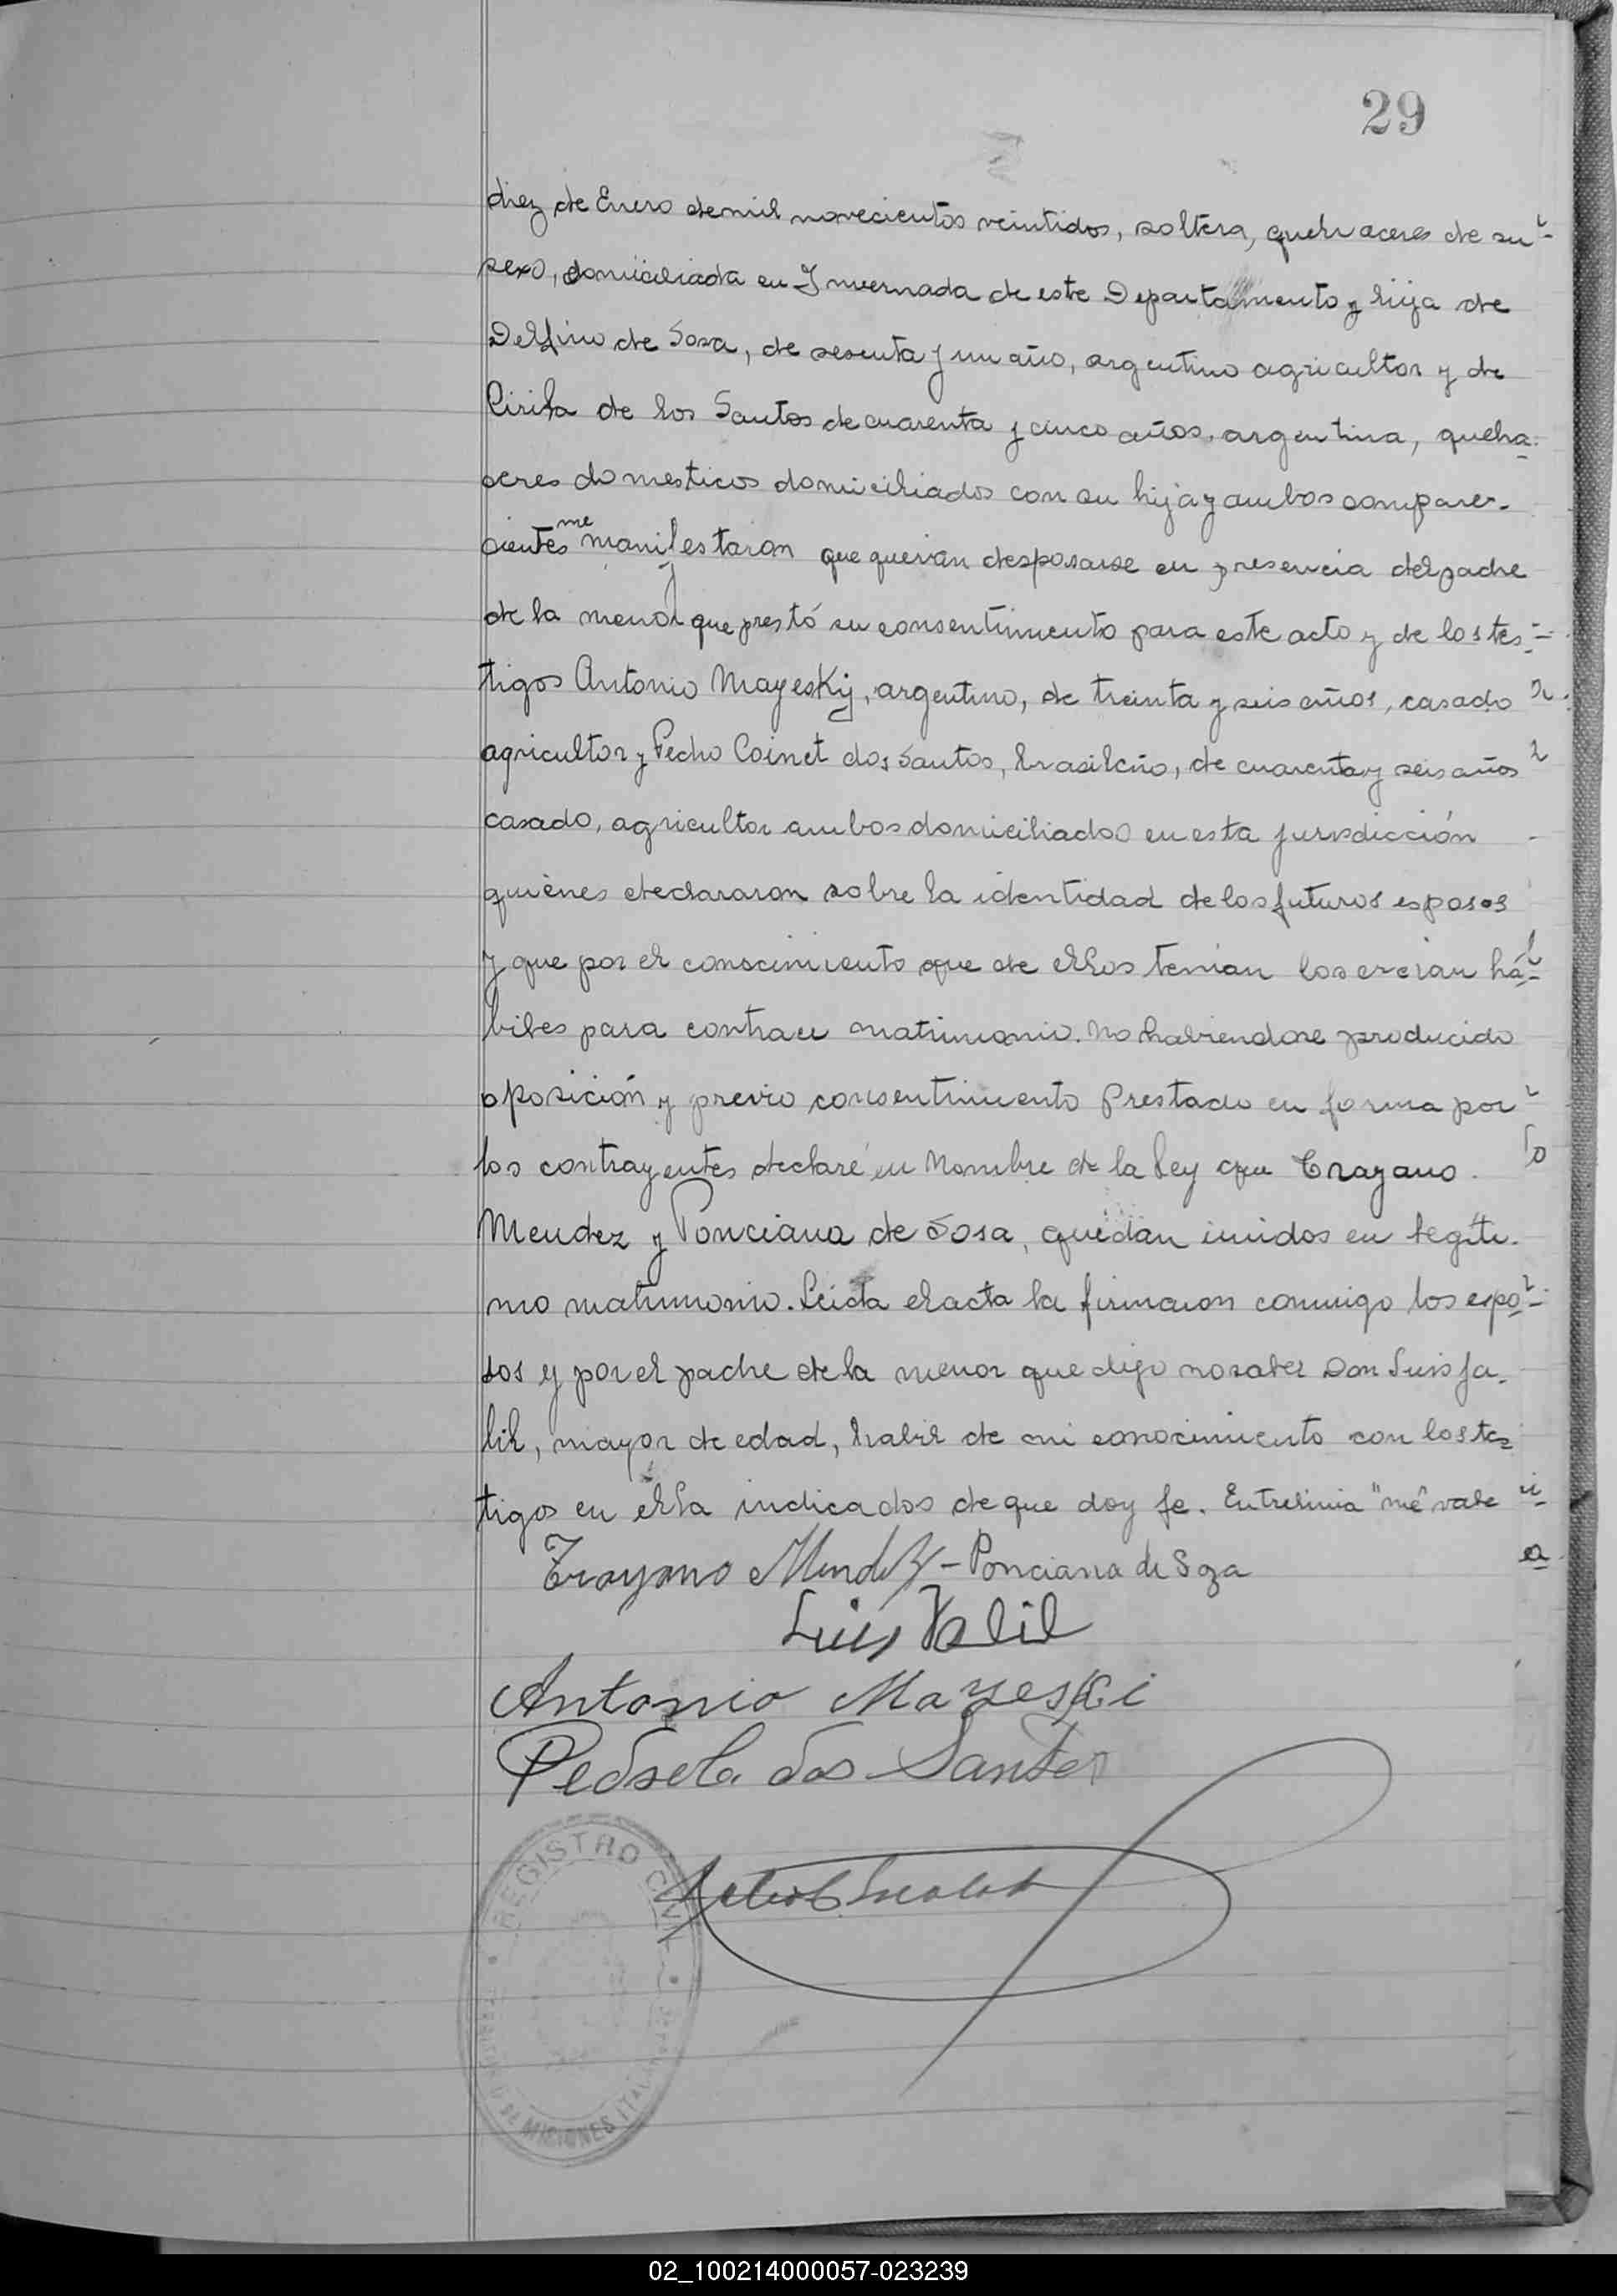 29
diez de Enero de mil novecientos veintidos, soltera, quehaceres de su
sexo, domiciliada en Invernada de este Departamento y hija de
Delfino de Sosa, de sesenta y un año, argentino agricultor y de
Cirila de los Santos de cuarenta y cinco años, argentina, queha-
ceres domesticos domiciliados con su hija y ambos compare-
cientes me manifestaron que querian desposarse en presencia del padre
de la menor que prestó su consentimiento para este acto y de los tes-
tigos Antonio Mayesky, argentino, de treinta y seis años, casado
agricultor y Pedro Coinet dos Santos, brasileño, de cuarenta y seis años
casado, agricultor ambos domiciliados en esta jurisdicción
quiènes declararon sobre la identidad de los futuros esposos
y que por el conocimiento que de ellos tenian los creian há-
biles para contraer matrimonio. No habiendose producido
oposición y previo consentimiento prestado en forma por
los contrayentes declaré en Nombre de la Ley que Trayano
Mendez y Ponciana de Sosa, quedan unidos en legiti-
mo matrimonio. Leida el acta la firmaron conmigo los espo-
sos y por el padre de la menor que dijo no saber Don Luis Ja-
lil, mayor de edad, habil de mi conocimiento con los tes-
tigos en ella indicados de que doy fe. Entrelinia "me" vale
Trayano Mendez - Ponciana de Soza
Luis Jalil
Antonio Mayeski
Pedro C. dos Santos
REGISTRO CIVIL
MISIONES
02_100214000057-023239